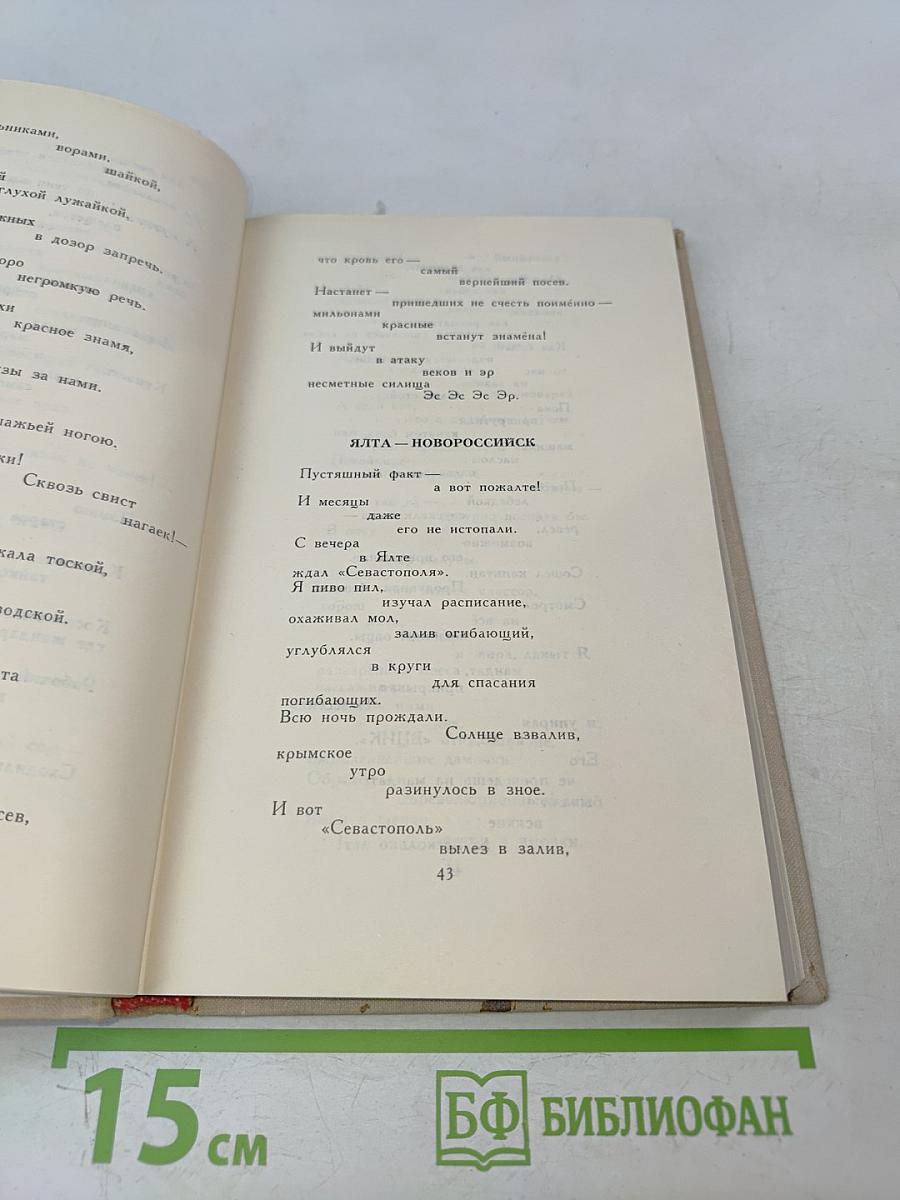 ворами,
шайкой,
глухой лужайкой,
в дозор запречь.
негромкую речь.
красное знамя,
за нами.
ногою.
Сквозь свист
нагаек!—
тоской,
что кровь его —
самый
вернейший посев.
Настанет —
пришедших не счесть поимённо —
мильонами
красные
встанут знамёна!
И выйдут
в атаку
веков и эр
несметные силища
Эс Эс Эс Эр.
ЯЛТА — НОВОРОССИЙСК
Пустяшный факт —
а вот пожалте!
И месяцы
даже
его не истопали.
С вечера
в Ялте
ждал «Севастополя».
Я пиво пил,
изучал расписание,
охаживал мол,
залив огибающий,
углублялся
в круги
для спасания
погибающих.
Всю ночь прождали.
Солнце взвалив,
крымское
утро
разинулось в зное.
И вот
«Севастополь»
вылез в залив,
43
15 см
БФ БИБЛИОФАН